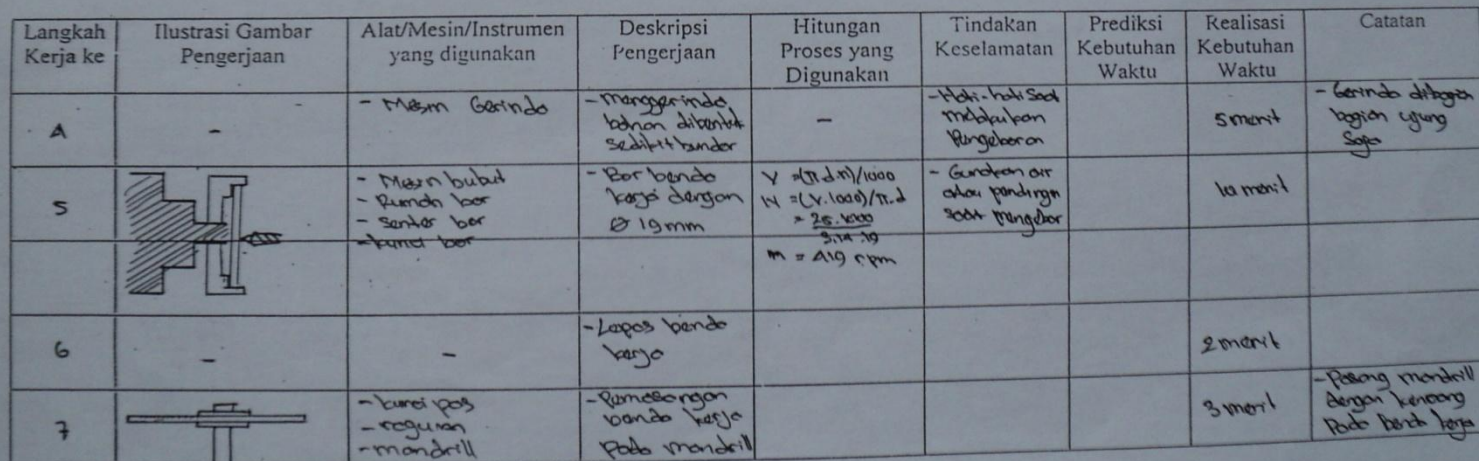 Langkah Kerja ke
Ilustrasi Gambar Pengerjaan
Alat/Mesin/Instrumen yang digunakan
Deskripsi Pengerjaan
Hitungan Proses yang Digunakan
Tindakan Keselamatan
Prediksi Kebutuhan Waktu
Realisasi Kebutuhan Waktu
Catatan
4
-
- Mesin Gerinda
- Menggerinda
bahan dibentuk
sedikit bundar
-
- Hati-hati saat
melakukan
Pengeboran
5 menit
- Gerinda dibagian
bagian ujung
Saja
5
- Mesin bubut
- Rumah bor
- Senter bor
- kunci bor
- Bor benda
kerja dengan
Ø 19 mm
V = (π.d.n)/1000
N = (V.1000)/π.d
= 25.1000
3,14.19
n = 419 rpm
- Gunakan air
atau pendingin
saat mengebor
10 menit
6
-
-
- Lepas benda
kerja
2 menit
7
- kunci pas
- ragum
- mandrill
- Pemasangan
benda kerja
pada mandrill
3 menit
- Pasang mandrill
dengan kencang
Pada benda kerja